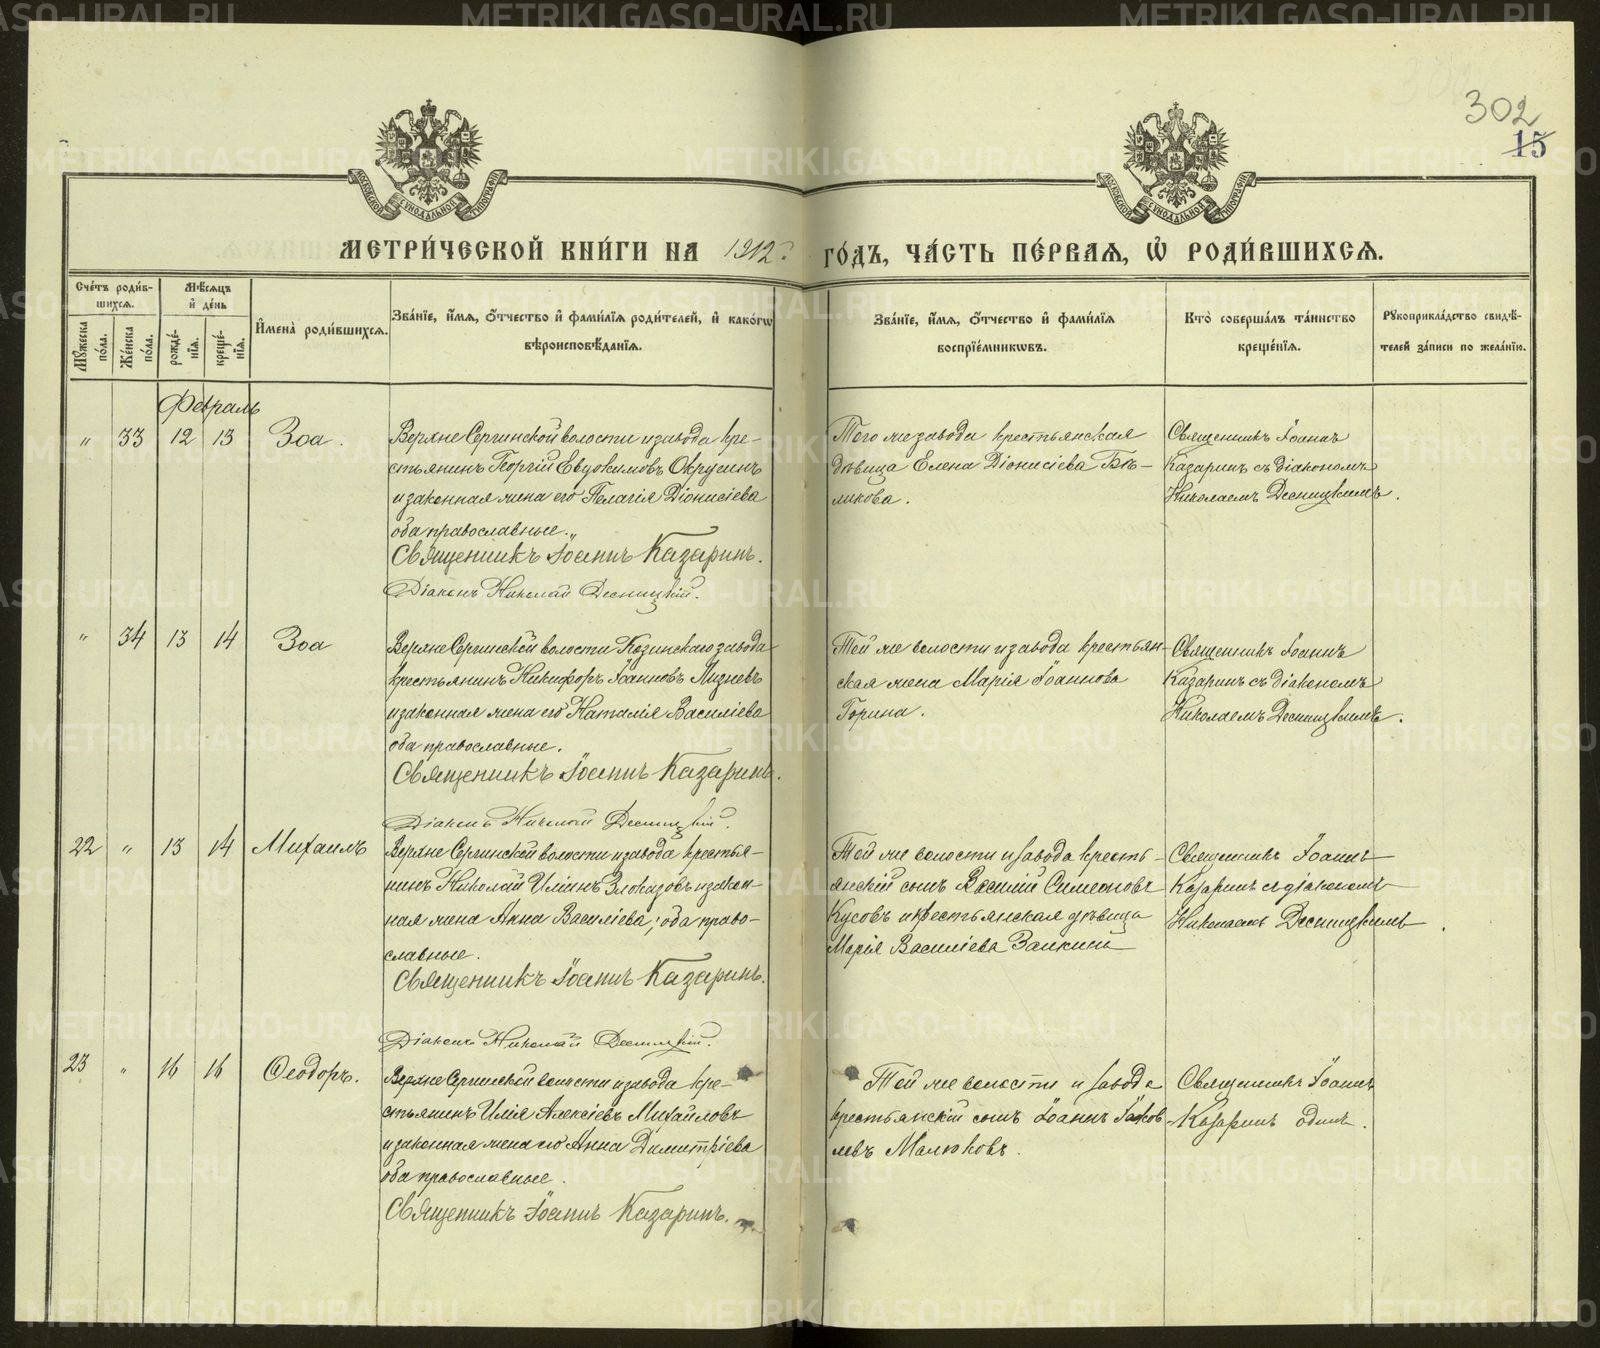 302
15
МОСКОВСКОЙ СѴНОДАЛЬНОЙ ТИПОГРАФІИ
МОСКОВСКОЙ СѴНОДАЛЬНОЙ ТИПОГРАФІИ
МЕТРИ́ЧЕСКОЙ КНИ́ГИ НА 1912 г. ГО́ДЪ, ЧА́СТЬ ПЕ́РВАѦ, Ѡ҆ РОДИ́ВШИХСѦ.
Сче́тъ роди́в-
шихсѧ.
Мꙋ́жеска по́ла.
Же́нска по́ла.
Мѣ́сѧцъ
и҆ де́нь
рожде́-
нїѧ.
креще́-
нїѧ.
И҆мена̀ роди́вшихсѧ.
Зва́нїе, и҆́мѧ, ѻ҆́тчество и҆ фами́лїѧ роди́телей, и҆ како́гѡ
вѣроисповѣ́данїѧ.
Зва́нїе, и҆́мѧ, ѻ҆́тчество и҆ фами́лїѧ
воспрїе́мникѡвъ.
Кто̀ соверша́лъ та́инство
креще́нїѧ.
Рꙋкоприкла́дство свидѣ́-
телей за́писи по жела́нїю.
Февраль
„ 33 12 13 Зоа.
Верхне Сергинской волости и завода кре-
стьянинъ Георгій Евдокимовъ Окрусинъ
и законная жена его Пелагія Діонисіева
оба православные.
Священникъ Іоаннъ Казаринъ.
Діаконъ Николай Десницкій.
Того же завода крестьянская
дѣвица Елена Діонисіева Бѣ-
ликова.
Священникъ Іоаннъ
Казаринъ съ діакономъ
Николаемъ Десницкимъ.
„ 34 13 14 Зоа
Верхне Сергинской волости Козинскаго завода
крестьянинъ Никифоръ Іоанновъ Лизневъ
и законная жена его Наталія Василіева
оба православные.
Священникъ Іоаннъ Казаринъ.
Діаконъ Николай Десницкій.
Той же волости и завода крестьян-
ская жена Марія Іоаннова
Горина.
Священникъ Іоаннъ
Казаринъ съ діакономъ
Николаемъ Десницкимъ.
22 „ 13 14 Михаилъ
Верхне Сергинской волости и завода крестья-
нинъ Николай Иліинъ Злоказовъ и закон-
ная жена Анна Василіева, оба право-
славные.
Священникъ Іоаннъ Казаринъ.
Діаконъ Николай Десницкій.
Той же волости и завода кресть-
янскій сынъ Василій Симеоновъ
Кусовъ и крестьянская дѣвица
Марія Василіева
Священникъ Іоаннъ
Казаринъ с діакономъ
Николаемъ Десницкимъ
23 „ 16 16 Ѳеодоръ.
Верхне Сергинской волости и завода кре-
стьянинъ Илія Алексіевъ Михайловъ
и законная жена его Анна Димитріева
оба православные.
Священникъ Іоаннъ Казаринъ.
Той же волости и завода
крестьянскій сынъ Іоаннъ Іаков-
левъ Малюковъ.
Священникъ Іоаннъ
Казаринъ одинъ.
METRIKI.GASO-URAL.RU